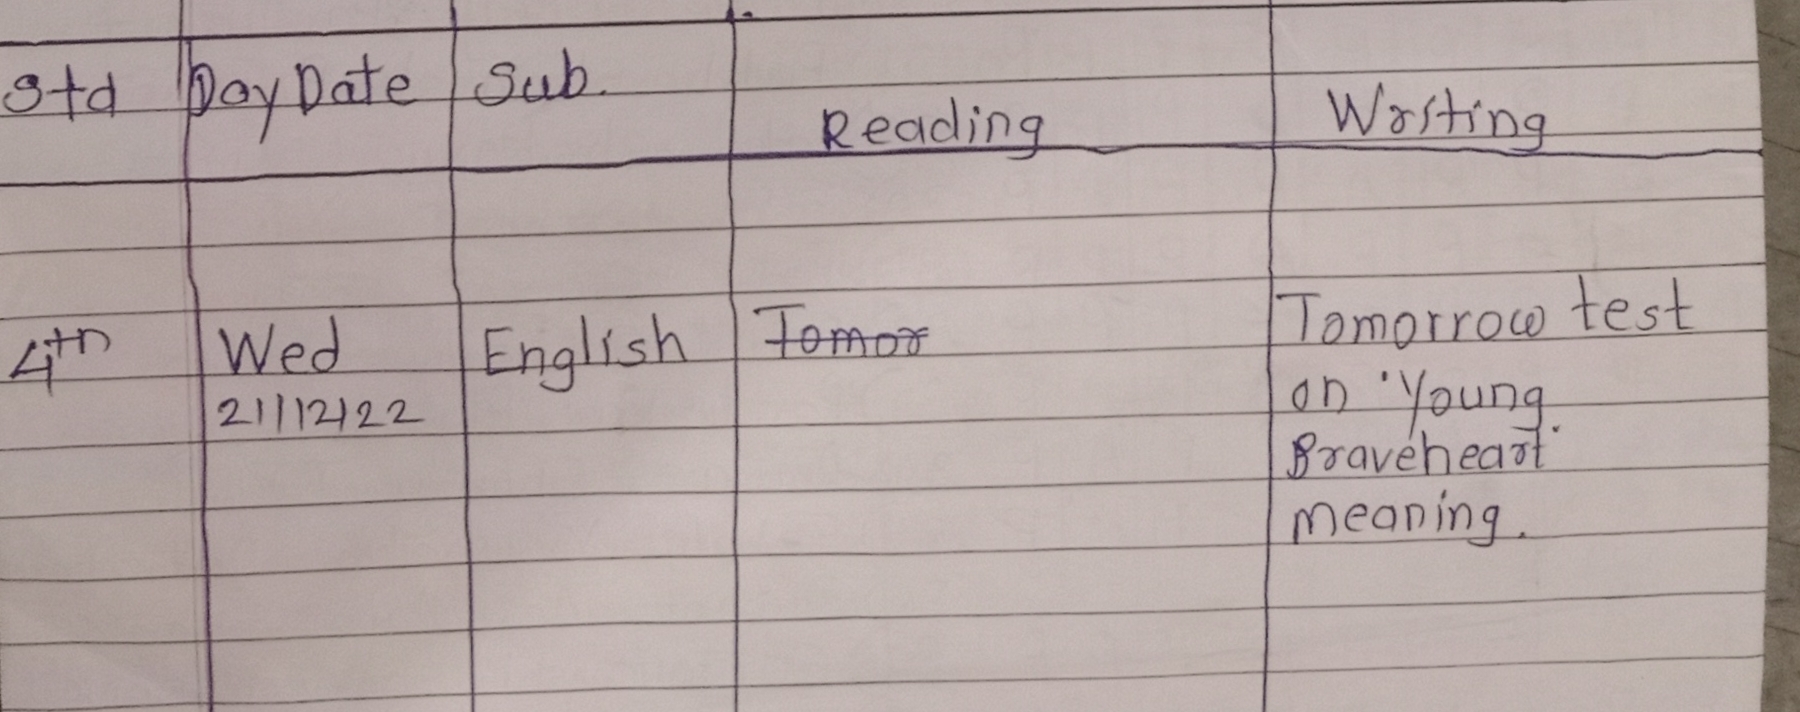 Std Day Date Sub. Reading Writing
4th Wed English Tomor Tomorrow test
21/12/22 on 'Young
Braveheart'
meaning.